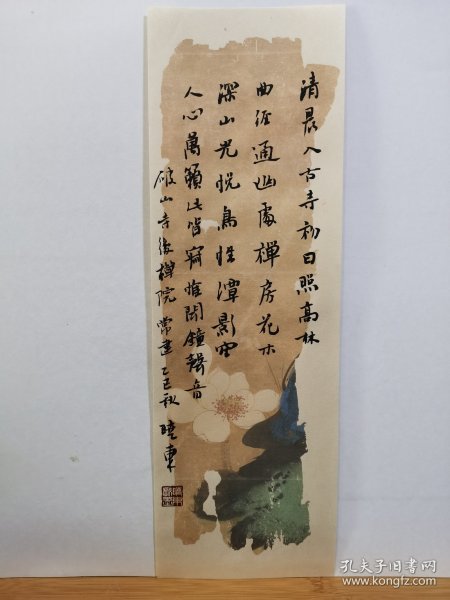 清晨入古寺初日照高林
曲徑通幽處禪房花木
深山光悅鳥性潭影空
人心萬籟此皆寂惟聞鐘聲音
破山寺後禪院 常建 乙巳秋 曉東
孔夫子旧书网
www.kongfz.com